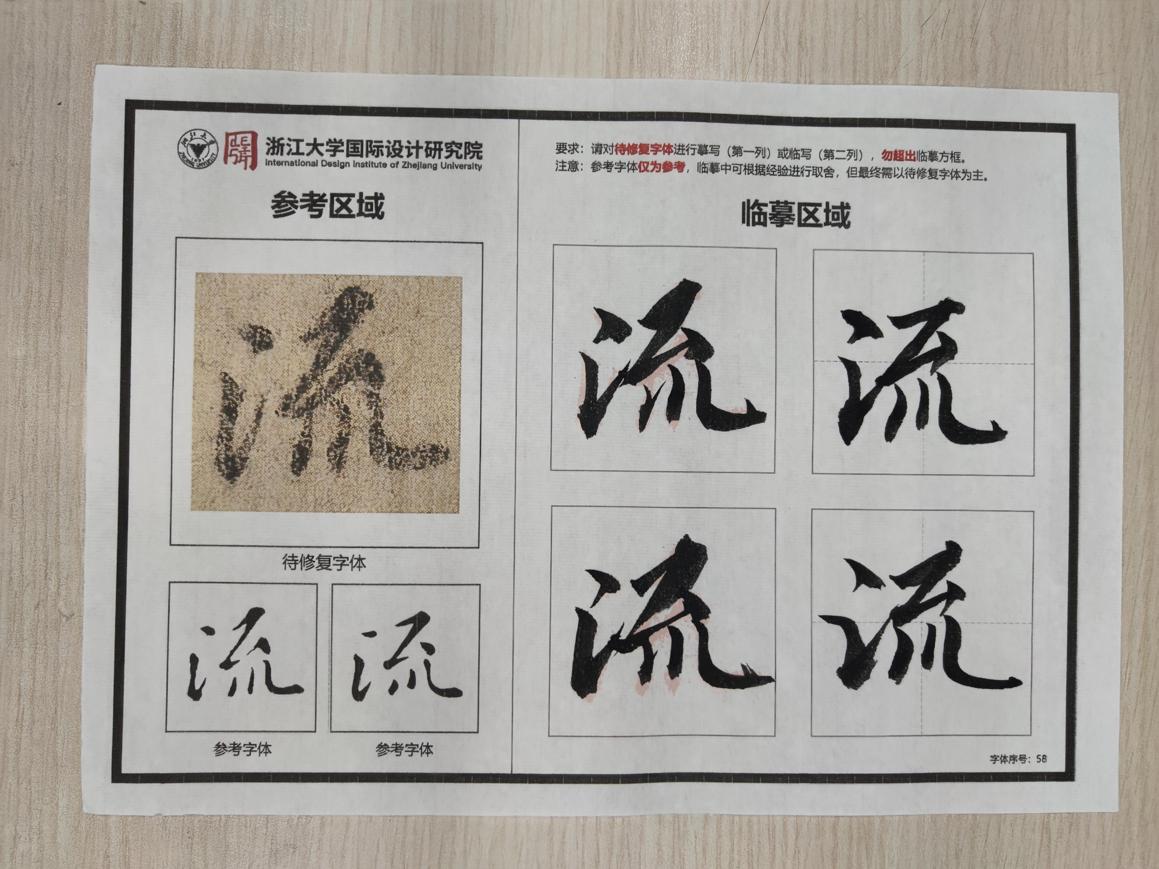 浙江大学国际设计研究院
International Design Institute of Zhejiang University
参考区域
流
待修复字体
流
流
参考字体
参考字体
要求：请对待修复字体进行摹写（第一列）或临写（第二列），勿超出临摹方框。
注意：参考字体仅为参考，临摹中可根据经验进行取舍，但最终需以待修复字体为主。
临摹区域
流
流
流
流
字体序号：58